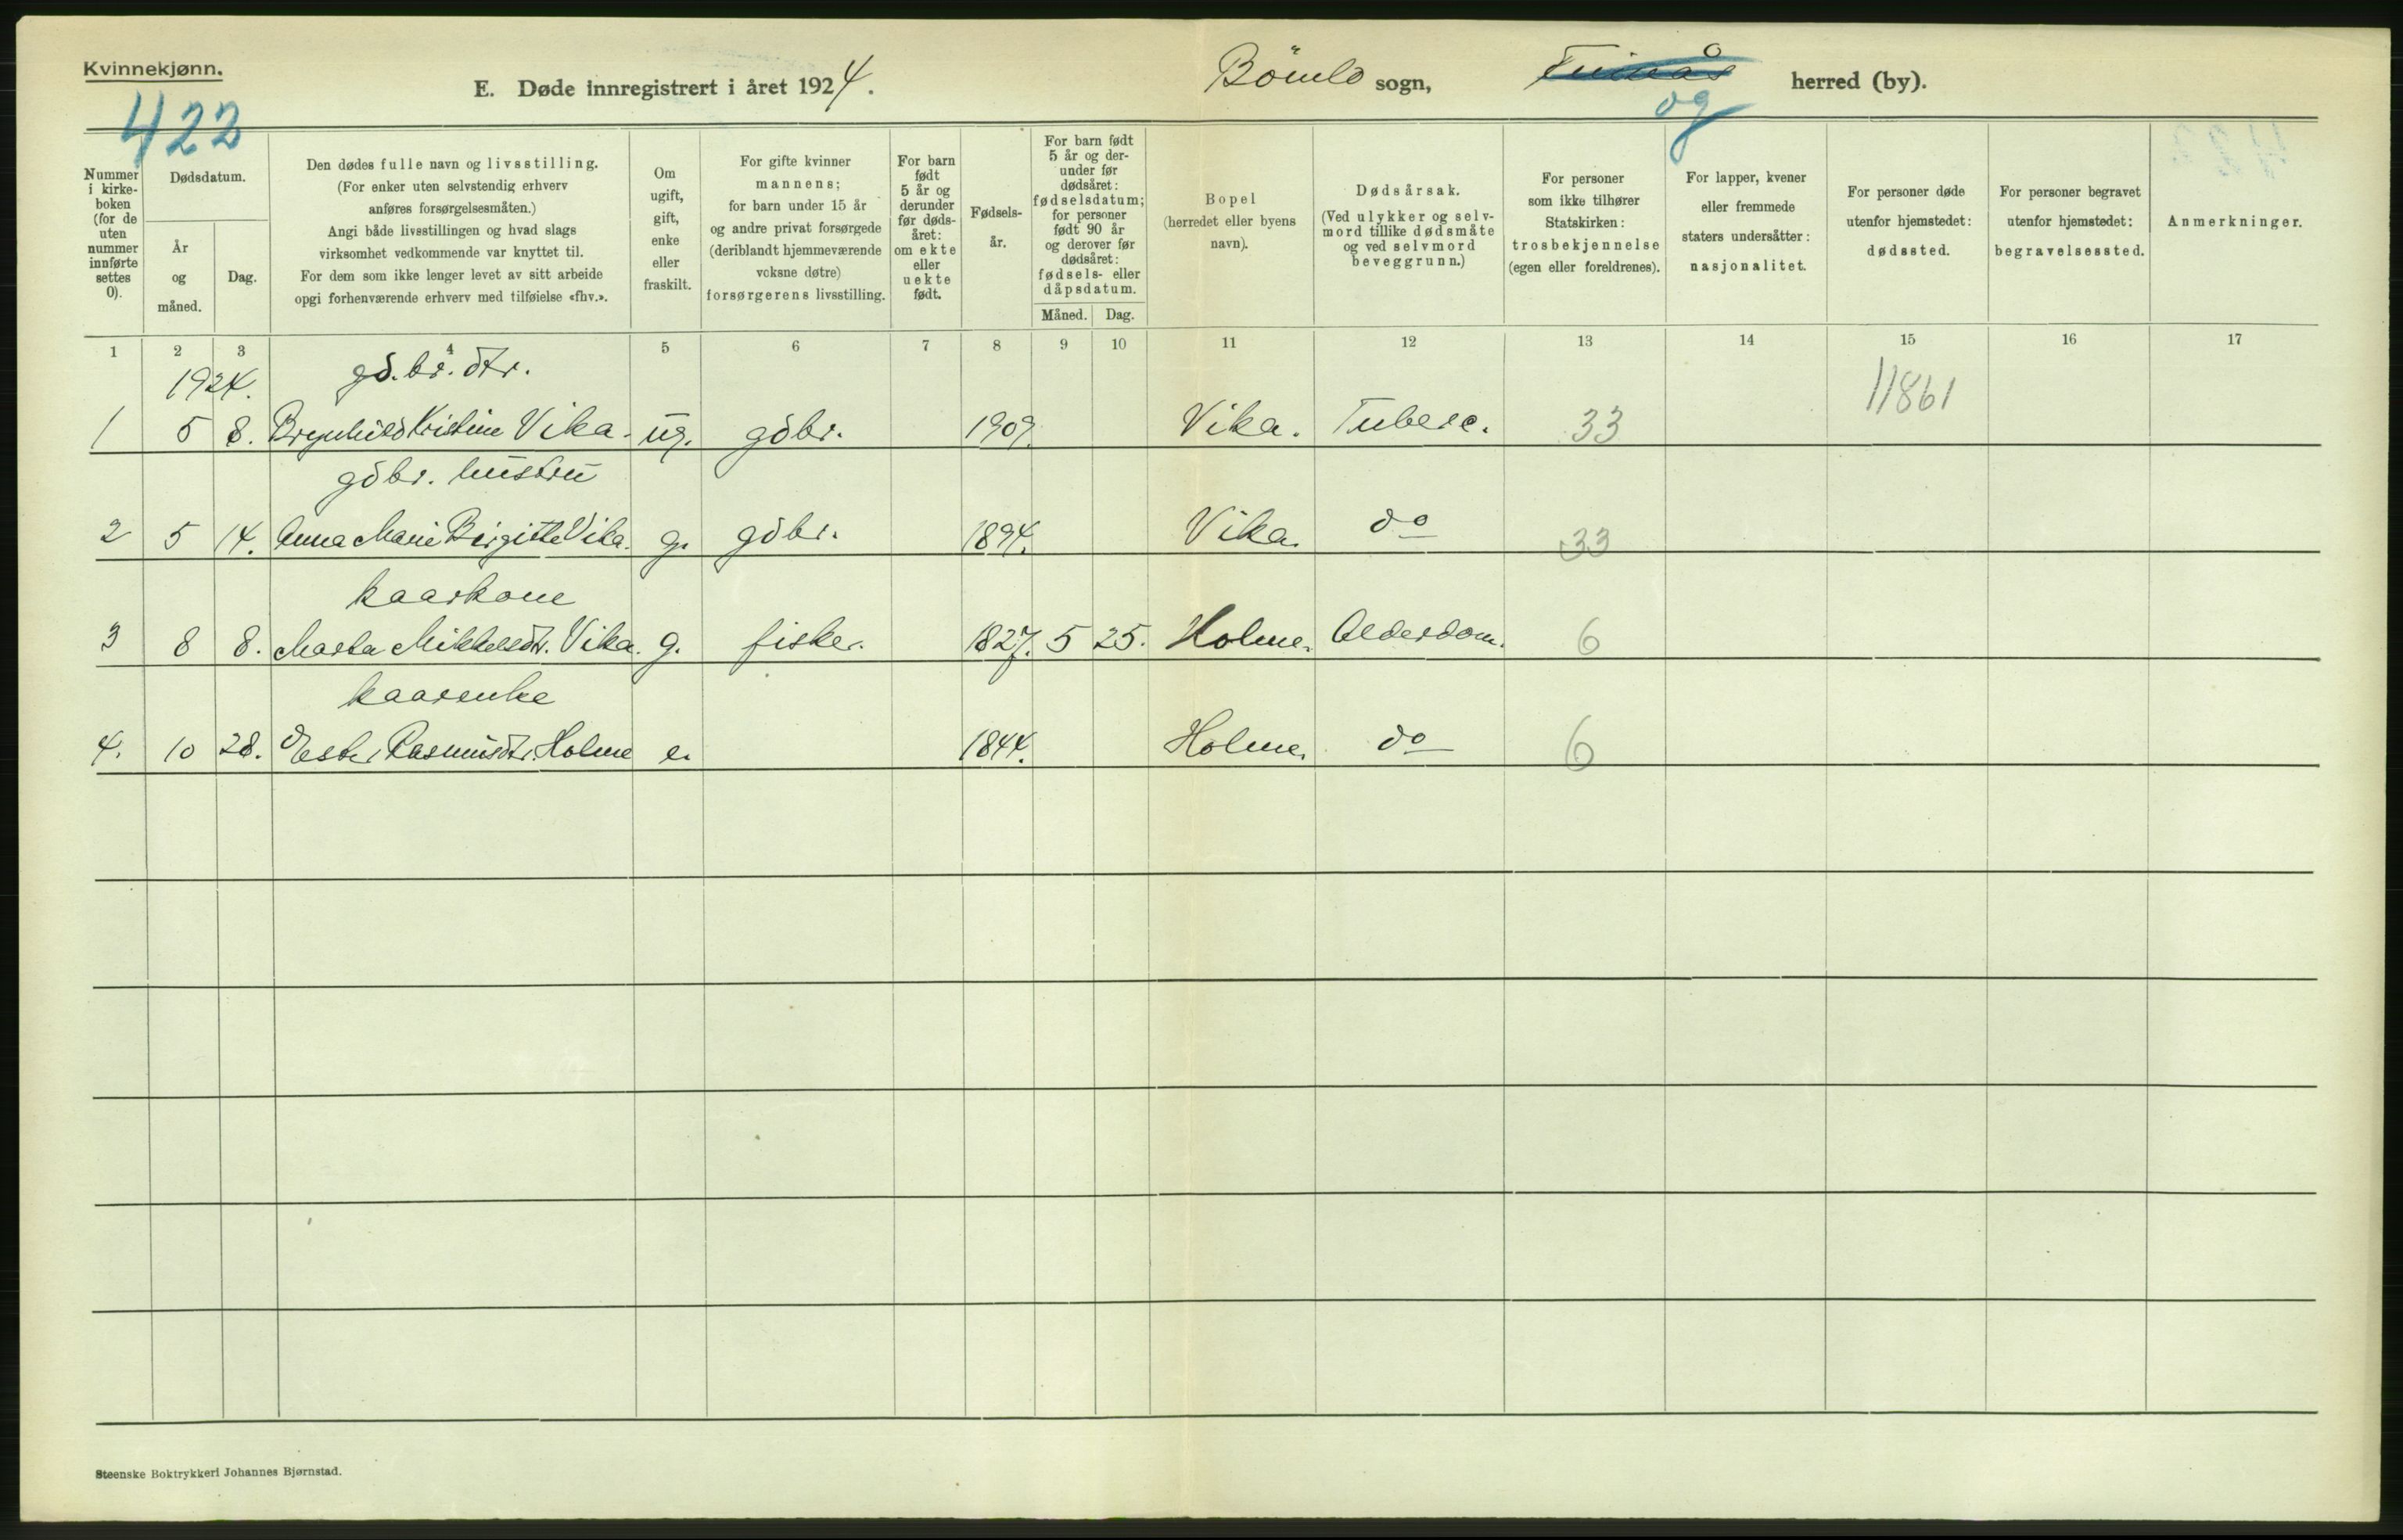 Kvinnekjønn.
E. Døde innregistrert i året 1924.
Bömlo sogn,
herred (by).
og
422
Nummer i kirke- boken (for de uten nummer innførte settes 0).
Dødsdatum.
År og måned.
Dag.
Den dødes fulle navn og livsstilling.
(For enker uten selvstendig erhverv
anføres forsørgelsesmåten.)
Angi både livsstillingen og hvad slags
virksomhet vedkommende var knyttet til.
For dem som ikke lenger levet av sitt arbeide
opgi forhenværende erhverv med tilføielse «fhv.».
Om ugift, gift, enke eller fraskilt.
For gifte kvinner
mannens;
for barn under 15 år
og andre privat forsørgede
(deriblandt hjemmeværende
voksne døtre)
forsørgerens livsstilling.
For barn født 5 år og derunder før døds- året: om ekte eller uekte født.
Fødsels- år.
For barn født 5 år og der- under før dødsåret: fødselsdatum; for personer født 90 år og derover før dødsåret: fødsels- eller dåpsdatum.
Måned. Dag.
Bopel
(herredet eller byens
navn).
Dødsårsak.
(Ved ulykker og selv-
mord tillike dødsmåte
og ved selvmord
beveggrunn.)
For personer
som ikke tilhører
Statskirken:
trosbekjennelse
(egen eller foreldrenes).
For lapper, kvener
eller fremmede
staters undersåtter:
nasjonalitet.
For personer døde
utenfor hjemstedet:
dødssted.
For personer begravet
utenfor hjemstedet:
begravelsessted.
Anmerkninger.
1 2 3 4 5 6 7 8 9 10 11 12 13 14 15 16 17
1924. gd.br. dtr. 11861
1 5 8. Brynhild Kristine Vika. ug. gdbr. 1909. Vika. Tuberc. 33
gdbr. hustru
2 5 14. Anna Marie Birgitte Vika. g. gdbr. 1894. Vika. do 33
kaarkone
3 8 8. Marta Mikkelsdtr. Vika. g. fisker. 1827. 5 25. Holme. Alderdom. 6
kaarenke
4. 10 28. Ester Rasmusdtr. Holme e. 1844. Holme. do 6
Steenske Boktrykkeri Johannes Bjørnstad.